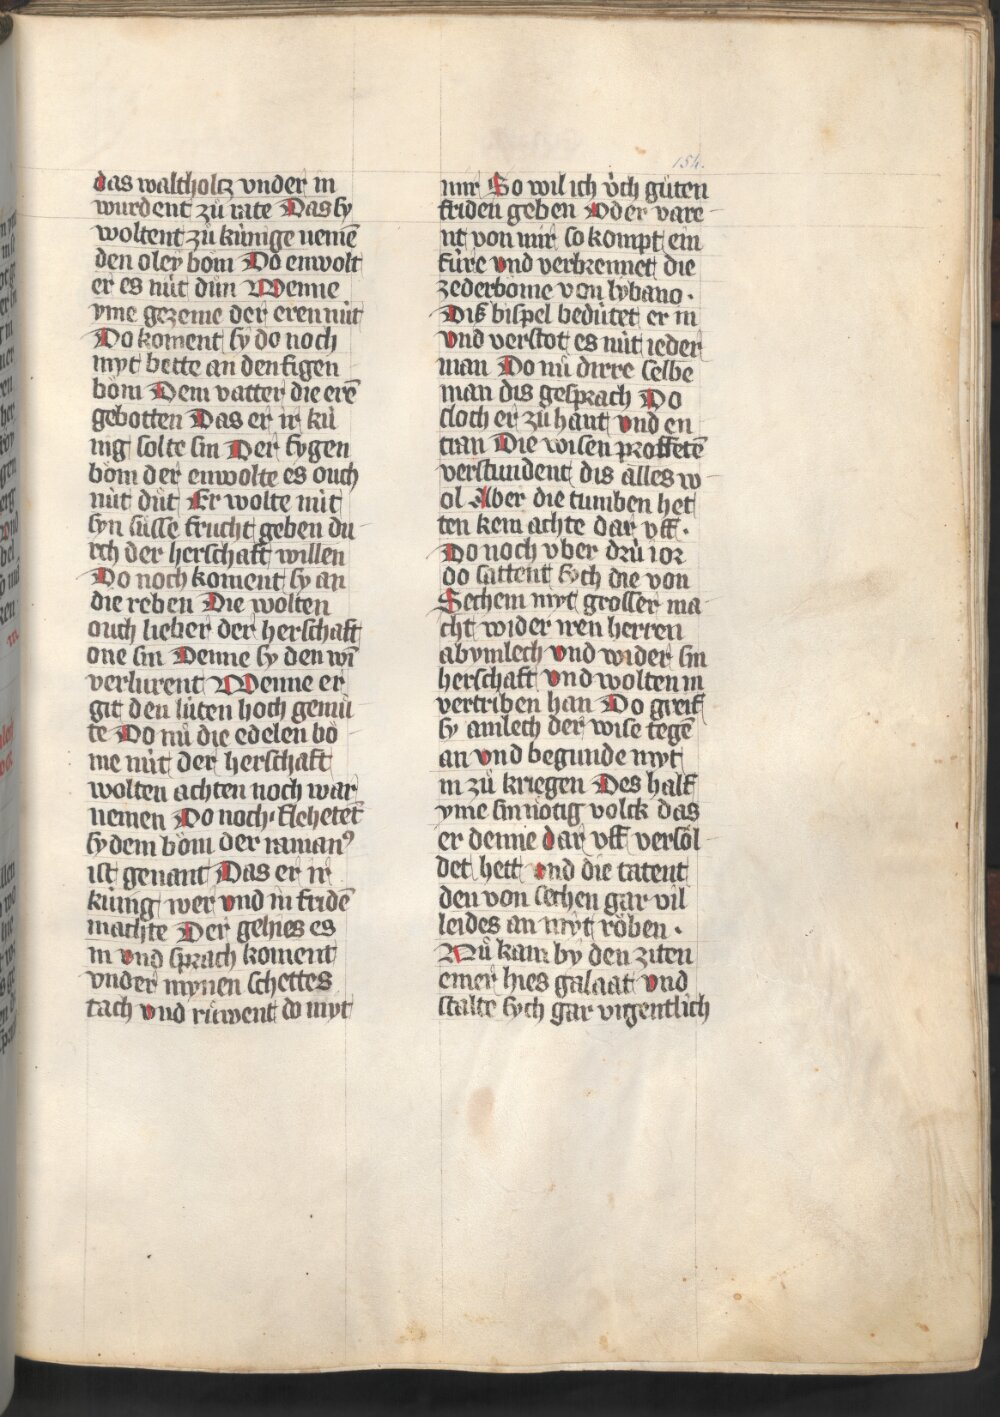 154.
das waltholcz vnder in
wurdent zů rate Das sy
woltent zů kúnige nemē
den oley bom Do enwolt
er es nút důn Wenne
yme gezeme der eren nút
Do koment sy do noch
myt bette an den figen
bom Dem vatter die erē
gebotten Das er ir kú
nig solte sin Der fygen
bom der enwolte es ouch
nút důt Er wolte nút
syn sússe frucht geben du
rch der herschaft willen
Do noch koment sy an
die reben Die wolten
ouch lieber der herschaft
one sin Denne sy den wi
verlurent Wenne er
git den lúten hoch gemů
te Do nů die edelen bo
me nút der herschaft
wolten achten noch war
nemen Do noch flehetet
sy dem bom der raman⁹
ist genant Das er ir
kúnig wer vnd in fridē
machte Der gehies es
in vnd sprach koment
vnder mynen schettes
tach vnd růwent do myt
mir So wil ich úch gůten
friden geben Oder vare
nt von mir so kompt ein
fúre vnd verbrennet die
zederbome von lybano .
Diß bispel bedútet er in
vnd verstot es nút ieder
man Do nů dirre selbe
man dis gesprach Do
floch er zů hant vnd en
tran Die wisen proffetē
verstundent dis alles w
ol Aber die tumben het
ten kein achte dar vff .
Do noch vber drú ior
do sattent sych die von
Sechem myt grosser ma
cht wider iren herren
abymlech vnd wider sin
herschaft vnd wolten in
vertriben han Do greif
sy amlech der wise tegē
an vnd begunde myt
in zů kriegen Des half
yme sin nötig volck das
er denne dar vff versol
det hett vnd die tatent
den von sechen gar vil
leides an myt röben .
Nů kam by den ziten
einer hies galaat vnd
stalte sych gar vigentlich